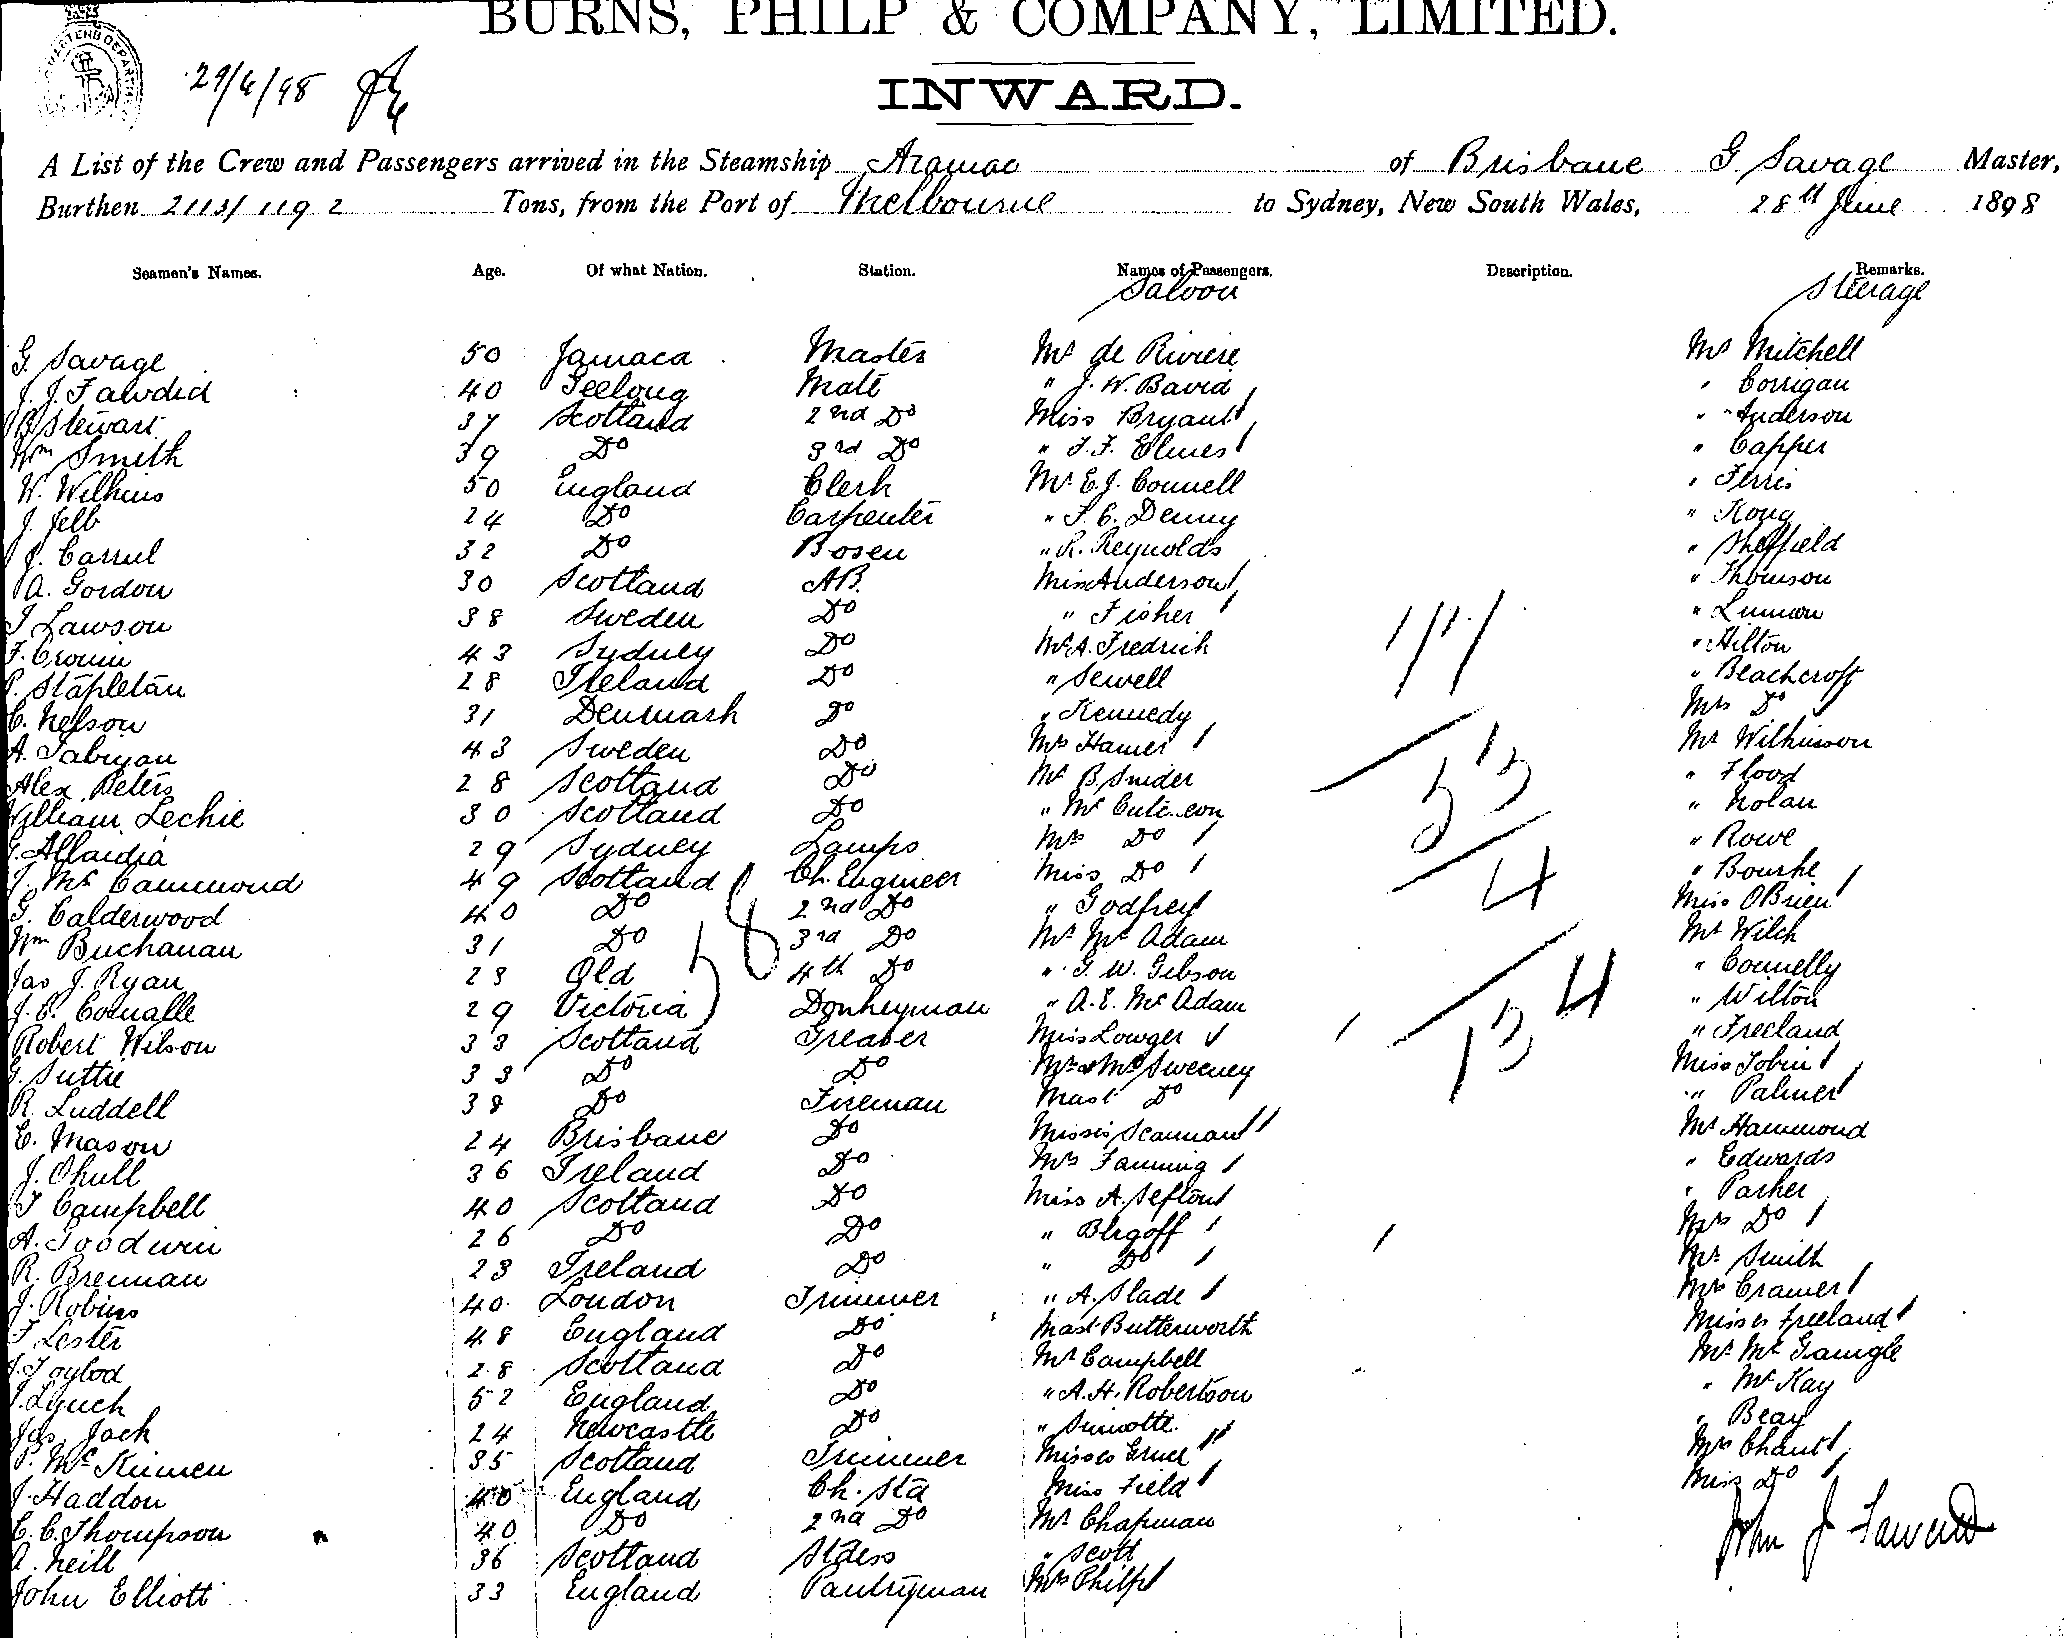 BURNS, PHILP & COMPANY, LIMITED.
29/6/98
INWARD.
A List of the Crew and Passengers arrived in the Steamship Aramac of Brisbane G Savage Master,
Burthen 2113/1192 Tons, from the Port of Melbourne to Sydney, New South Wales, 28th June 1898
Seamen's Names. Age. Of what Nation. Station. Names of Passengers. Description. Remarks.
Saloon Steerage
G Savage 50 Jamaca Master Mr de Riviere Mr Mitchell
J. J. Fawdid 40 Geelong Mate " J. W. Bavid " Corrigan
Stewart 37 Scotland 2nd Do Miss Bryant " Anderson
Wm Smith 39 Do 3rd Do " F. F. Elmes " Capper
W. Wilkins 50 England Clerk Mr E. J. Connell " Ferris
J. Jelb 24 Do Carpenter " F. C. Denny " Kong
J. Carrul 32 Do Bosen " R. Reynolds " Sheffield
A. Gordon 30 Scotland AB. Miss Anderson " Thomson
J Lawson 38 Sweden Do " Fisher " Lunnon
F. Cronin 43 Sydney Do Mr A. Fredrich " Hilton
P. Stapletan 28 Ireland Do " Sewell " Beachcroft
C. Nelson 31 Denmark Do " Kennedy Mrs Do
A. Tabryan 43 Sweden Do Mrs Hamer Mr Wilkinson
Alex Peters 28 Scotland Do Mr B Snider " Flood
William Lechie 30 Scotland Do " Mc " Nolan
Allardia 29 Sydney Lamps Mrs Do " Rowe
J. Mc Cammond 49 Scotland Ch. Engineer Miss Do " Bourke
G. Calderwood 40 Do 2nd Do " Godfrey Miss OBrien
Wm Buchanan 31 Do 3rd Do Mr Mc Adam Mr Wilch
Jas J. Ryan 23 Qld 4th Do " G. W. Gibson " Connelly
J. E. Cornalle 29 Victoria Donkeyman " A. E. Mc Adam " Wilton
Robert Wilson 33 Scotland Greaser Miss Lowger " Freeland
G. Suttie 33 Do Do Mr & Mrs Sweeney Miss Tobin
R. Luddell 38 Do Fireman Mast Do " Palmer
E. Mason 24 Brisbane Do Misses Scannan Mr Hammond
J. Ohull 36 Ireland Do Mrs Fanning " Edwards
J Campbell 40 Scotland Do Miss A. Sefton " Parker
A. Goodwin 26 Do Do " Bergoff Mrs Do
R. Brennan 23 Ireland Do " Do Mr Smith
J. Robins 40 London Trimmer " A. Slade Mrs Cramer
J Lester 48 England Do Mast Butterworth Misses Freeland
J. Toylod 28 Scotland Do Mr Campbell Mr Mc Gaingle
J. Lynch 52 England Do " A. H. Robertson " Mc Kay
Jas. Jack 24 Newcastle Do " Sumotte " Beay
P. Mc Kinnen 35 Scotland Trimmer Misses Gruel Mrs Chant
J. Haddon 40 England Ch. Std Miss Field Miss Do
C. C. Thompson 40 Do 2nd Do Mr Chapman
A. Neill 36 Scotland Stdess " Scott
John Elliott 33 England Pantryman Mrs Philp
58
53
4
134
John J Fawcett